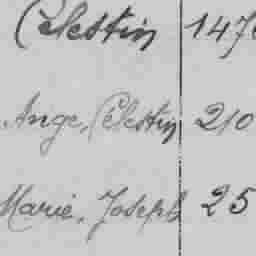 Célestin 147
Ange, Célestin 210
Marie, Joseph 25